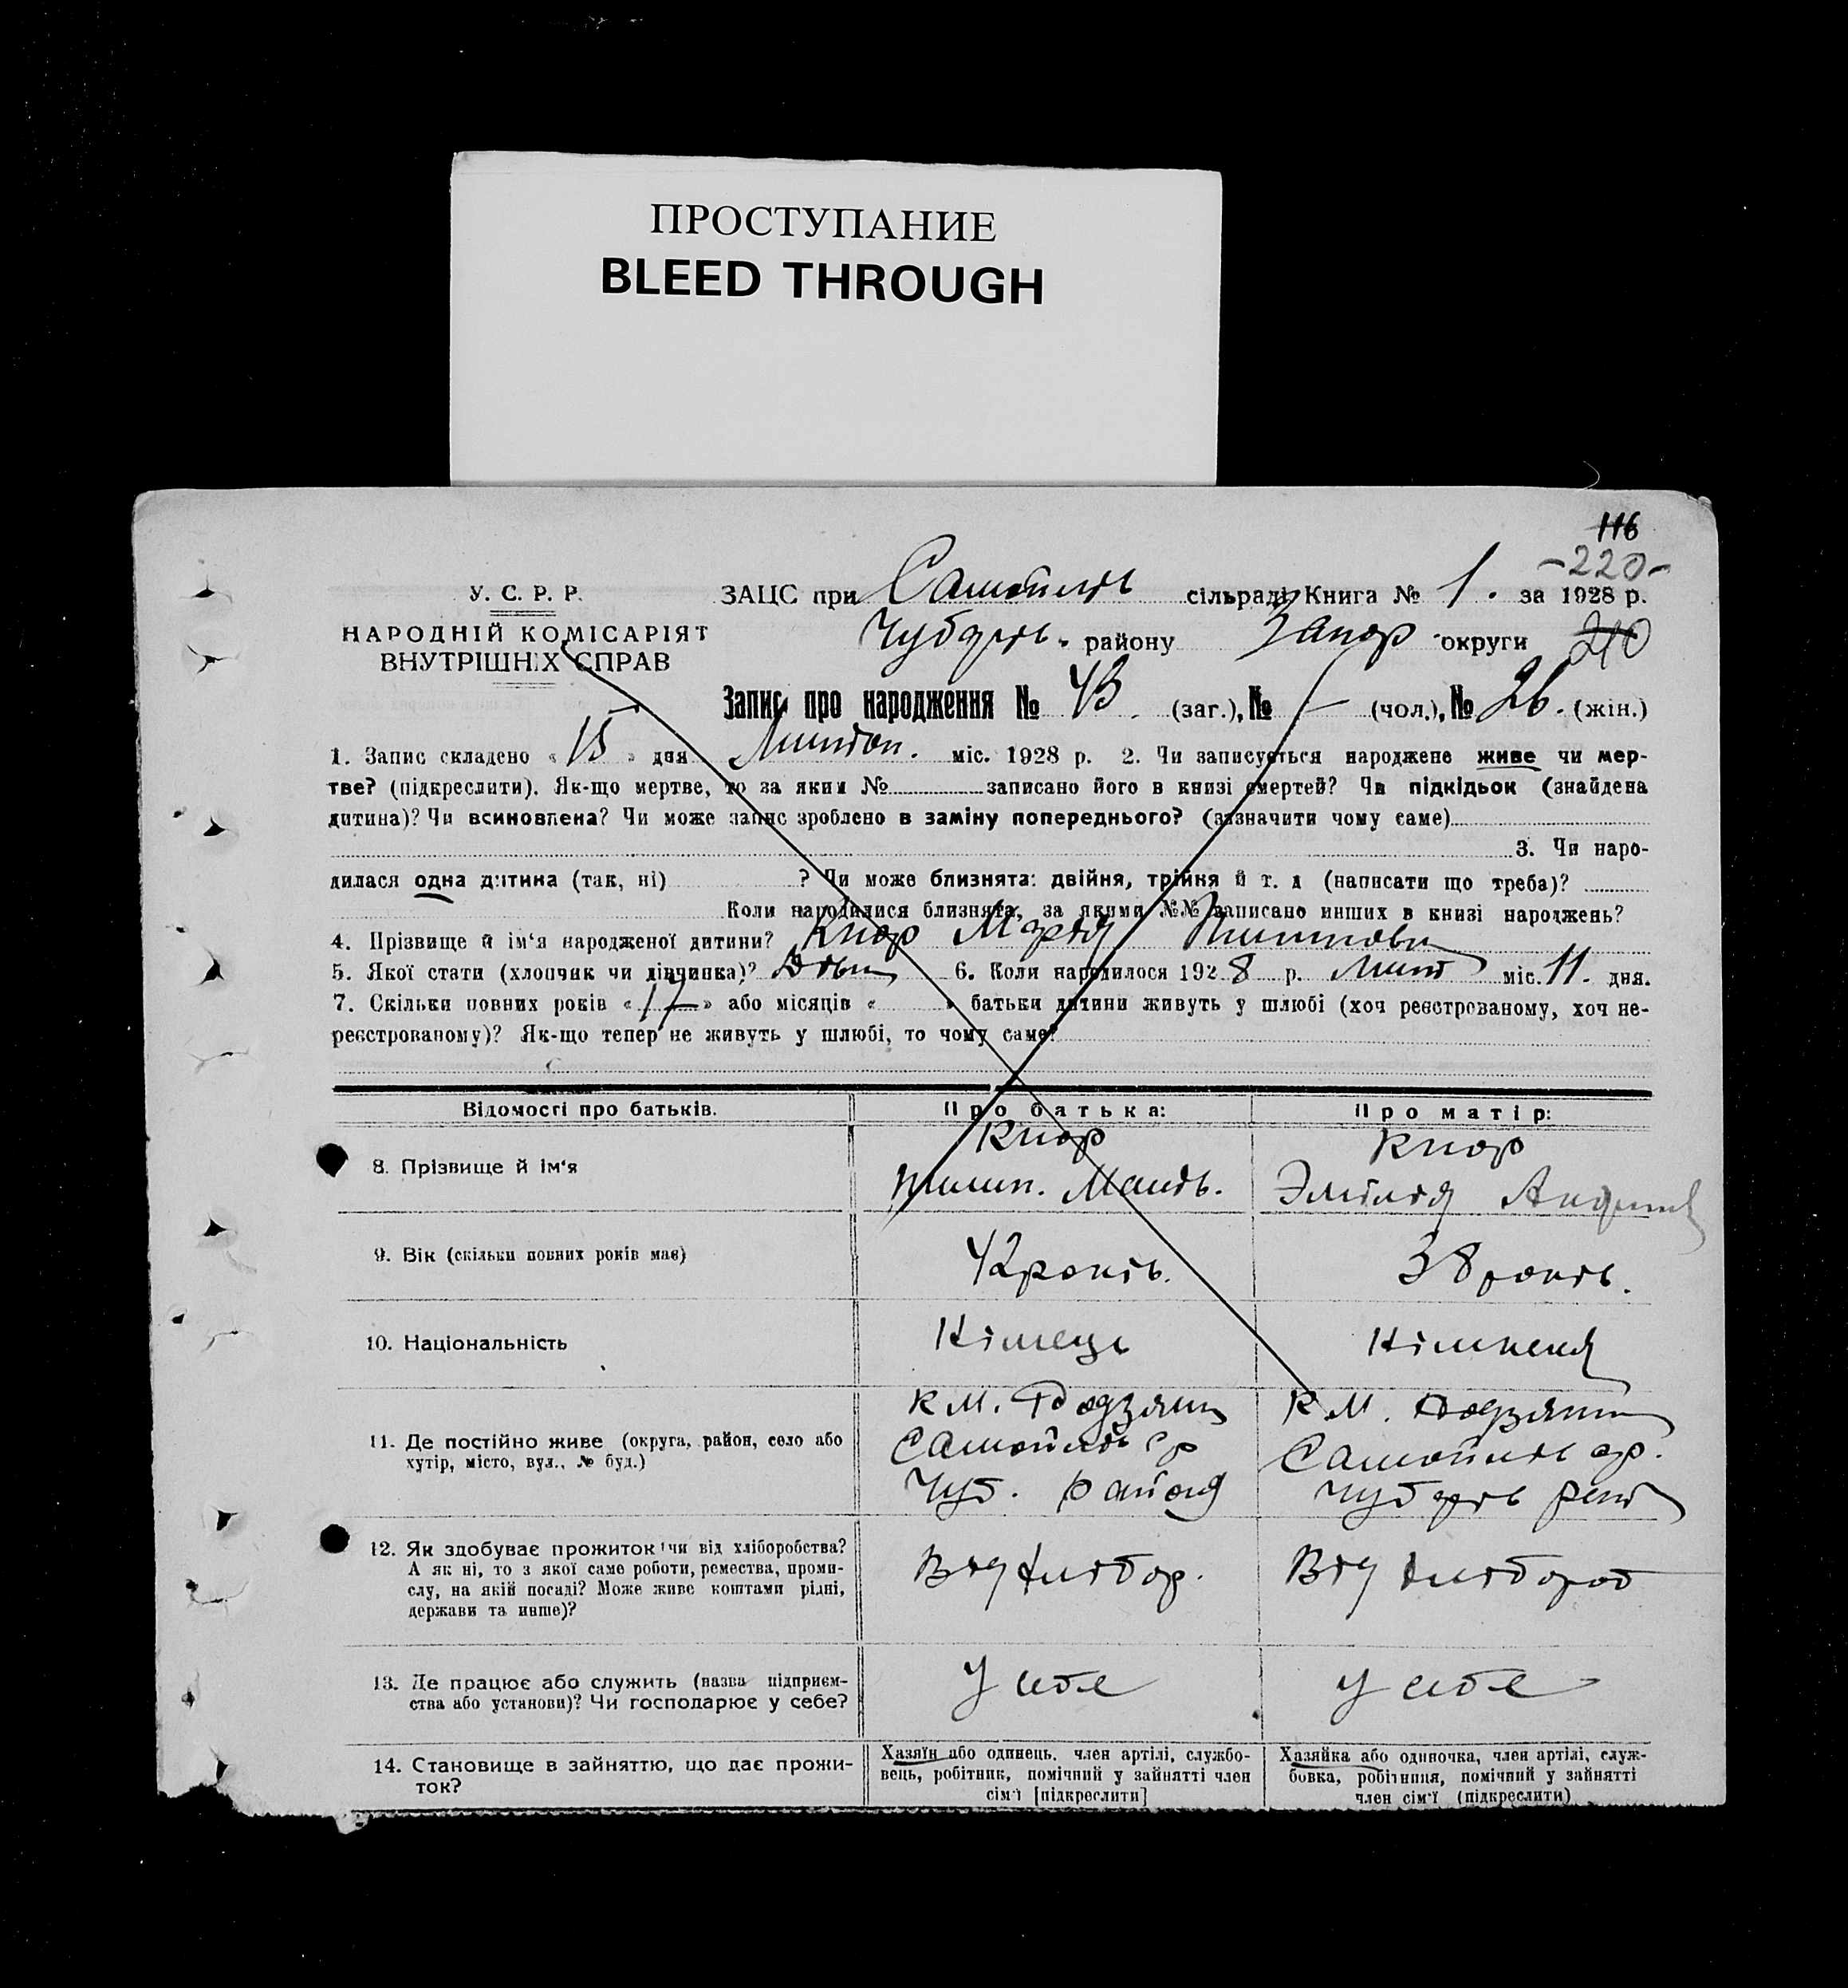 ПРОСТУПАНИЕ
BLEED THROUGH
116
-220-
У. С. Р. Р.
НАРОДНІЙ КОМІСАРІЯТ
ВНУТРІШНІХ СПРАВ
ЗАЦС при Самойлів сільраді Книга № 1. за 1928 р.
Чубарів. району Запор округи 210
Запис про народження № 43. (заг.), № — (чол.), № 26. (жін.)
1. Запис складено «15» дня міс. 1928 р. 2. Чи записується народжене живе чи мер-
тве? (підкреслити). Як-що мертве, то за яким № записано його в книзі смертей? Чи підкідьок (знайдена
дитина)? Чи всиновлена? Чи може запис зроблено в заміну попереднього? (зазначити чому саме)
3. Чи наро-
дилася одна дитина (так, ні) ? Чи може близнята: двійня, трійня й т. д (написати що треба)?
Коли народилися близнята, за якими №№ записано инших в книзі народжень?
4. Прізвище й ім'я народженої дитини? Кнор Марія
5. Якої стати (хлопчик чи дівчинка)? 6. Коли народилося 1928 р. міс. 11. дня.
7. Скільки повних років «17» або місяців « » батьки дитини живуть у шлюбі (хоч реєстрованому, хоч не-
реєстрованому)? Як-що тепер не живуть у шлюбі, то чому саме?
Відомості про батьків.
Про батька:
Про матір:
8. Прізвище й ім'я
Кнор
Пилип.
Кнор
Эмілія
9. Вік (скільки повних років має)
42 років.
38 років.
10. Національність
Німець
Німкеня
11. Де постійно живе (округа, район, село або
хутір, місто, вул., № буд.)
Самойлів с р
Чуб. район
Самойлів ср.
Чубарів
12. Як здобуває прожиток чи від хліборобства?
А як ні, то з якої саме роботи, ремества, проми-
слу, на якій посаді? Може живе коштами рідні,
держави та инше)?
Від хлібор.
Від хлібороб
13. Де працює або служить (назва підприєм-
ства або установи)? Чи господарює у себе?
У себе
У себе
14. Становище в зайняттю, що дає прожи-
ток?
Хазяїн або одинець, член артілі, службо-
вець, робітник, помічний у зайнятті член
сім'ї [підкреслити]
Хазяйка або одиночка, член артілі, служ-
бовка, робітниця, помічний у зайнятті
член сім'ї (підкреслити)